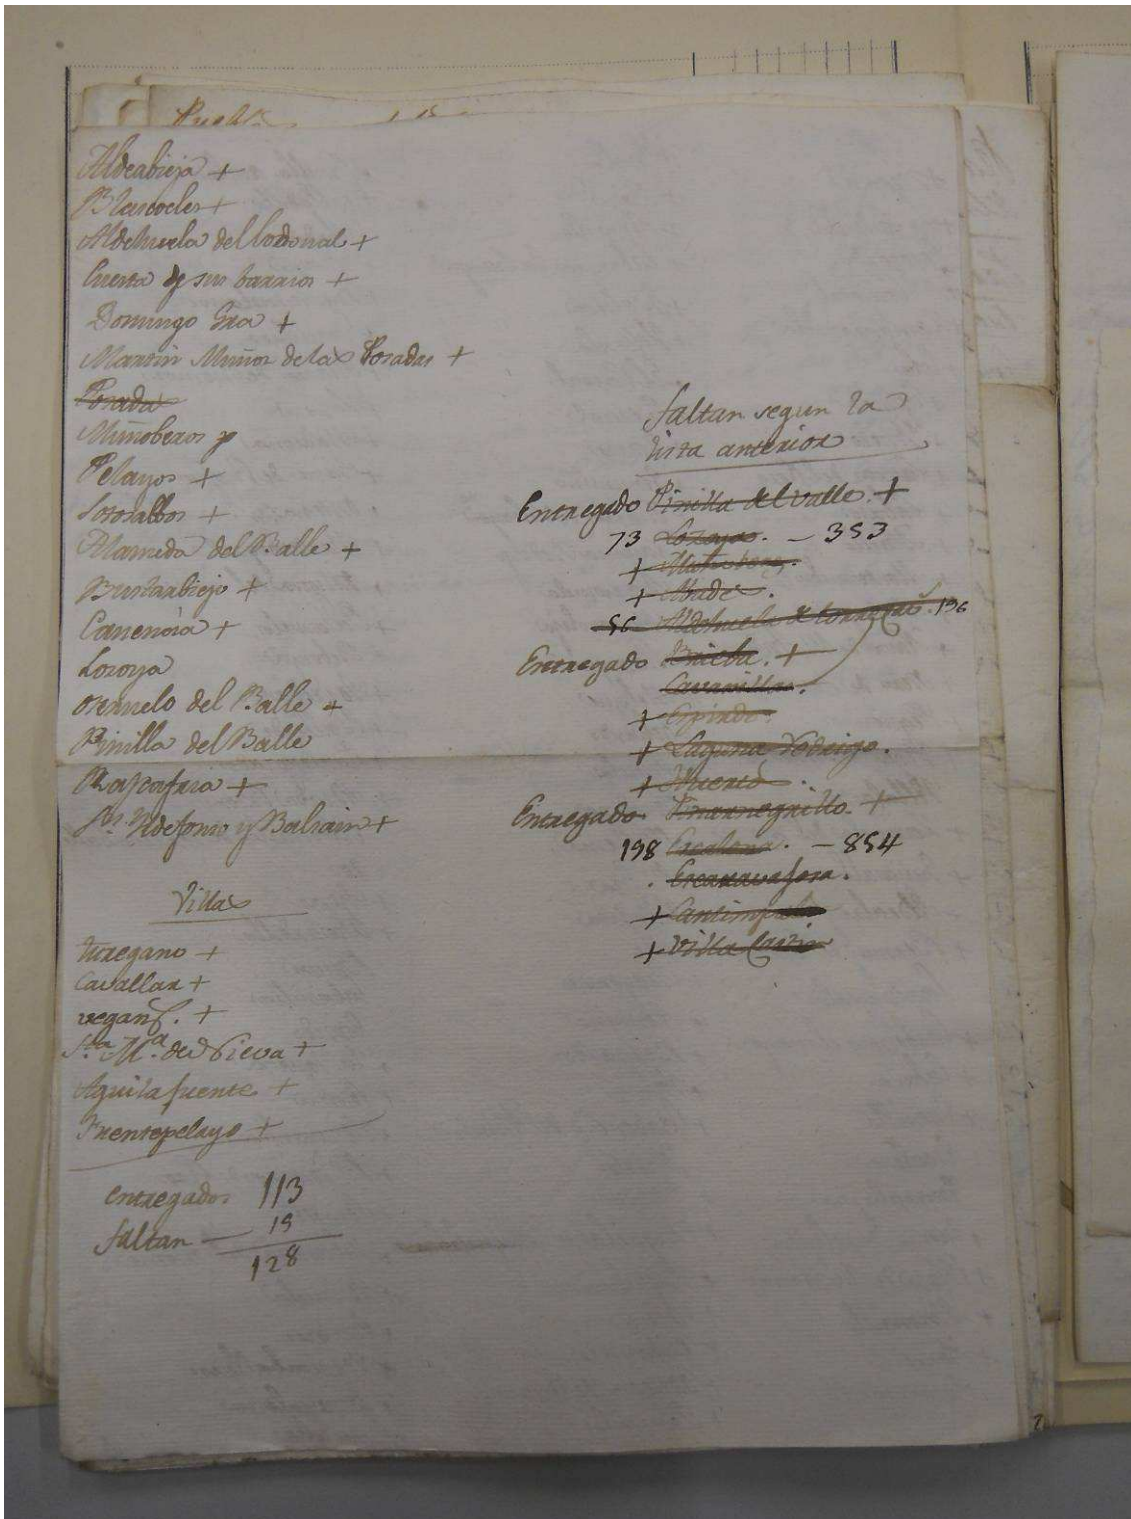 Aldeabieja +
Blascoeles +
Aldehuela del Codonal +
Cuesta y sus barrios +
Domingo Gra +
Martin Muñoz de las Posadas +
Posadas
Muñoberos
Pelayos +
Sotosalbos +
Alameda del Balle +
Bustarbiejo +
Canencia +
Lozoya
Oteruelo del Balle +
Pinilla del Balle
Rascafria +
Sn. Yldefonso y Balsain +
Villas
turegano +
Cavallar +
veganz. +
Sta. Ma. de Nieva +
Aguilafuente +
Fuentepelayo +
entregados 113
faltan — 15
128
faltan segun la
lista anterior
Entregado Pinilla del valle. +
73 Lozoya. — 353
+ Muñoberos.
+ Abade.
56 Aldehuela 196
Entregado Brieba. +
Cavanillas.
+ Espirdo.
+ Laguna Rodrigo.
+ Huertos.
Entregado. Pinarnegrillo. +
198 Escalona. — 854
. Escaravajosa.
+ Cantimpalos
+ Villa Castin